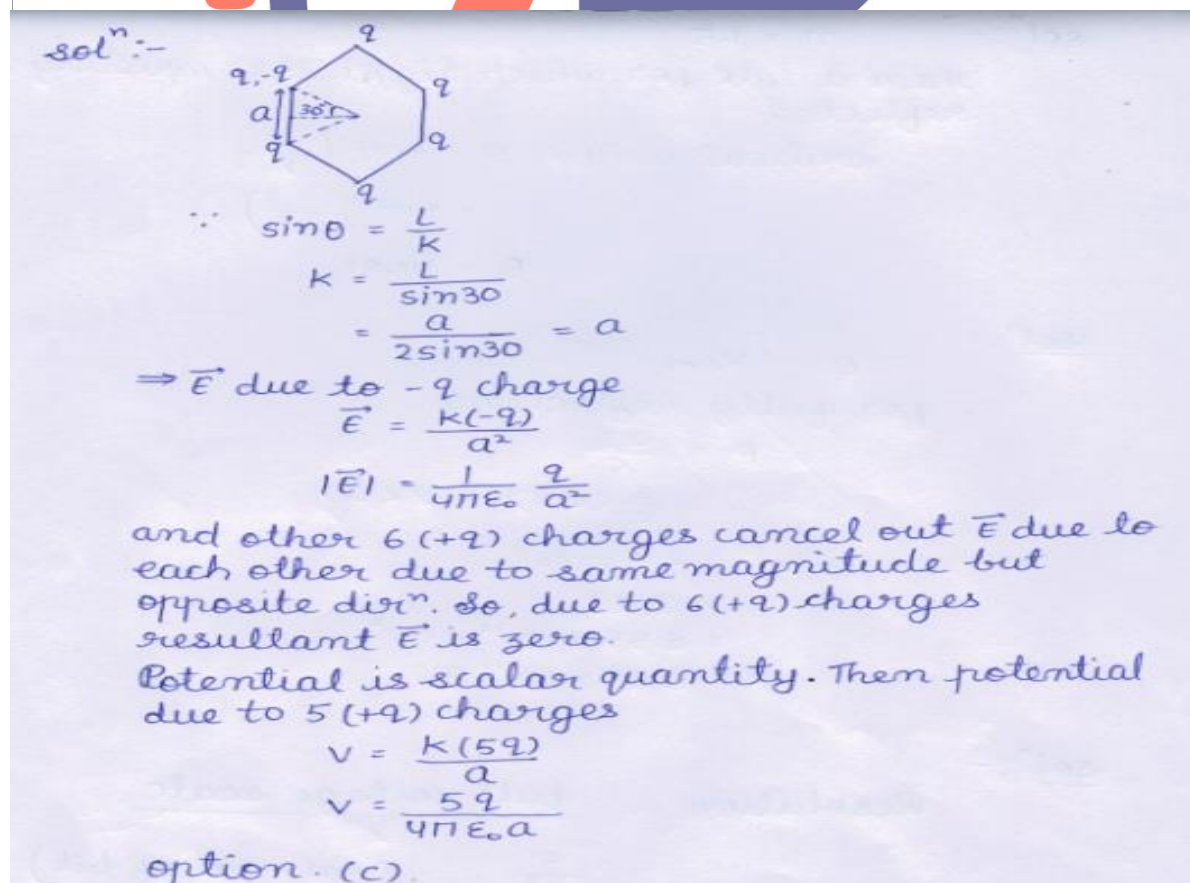 solⁿ :-
q
q,-q
q
a
30°
q
q
q
∵ sinθ = L/K
K = L/sin30
= a/2sin30 = a
⇒ E⃗ due to -q charge
E⃗ = K(-q)/a²
|E⃗| = 1/4πε₀ q/a²
and other 6(+q) charges cancel out E⃗ due to
each other due to same magnitude but
opposite dirⁿ. So, due to 6(+q) charges
resultant E⃗ is zero.
Potential is scalar quantity. Then potential
due to 5(+q) charges
V = K(5q)/a
V = 5q/4πε₀a
option. (c).